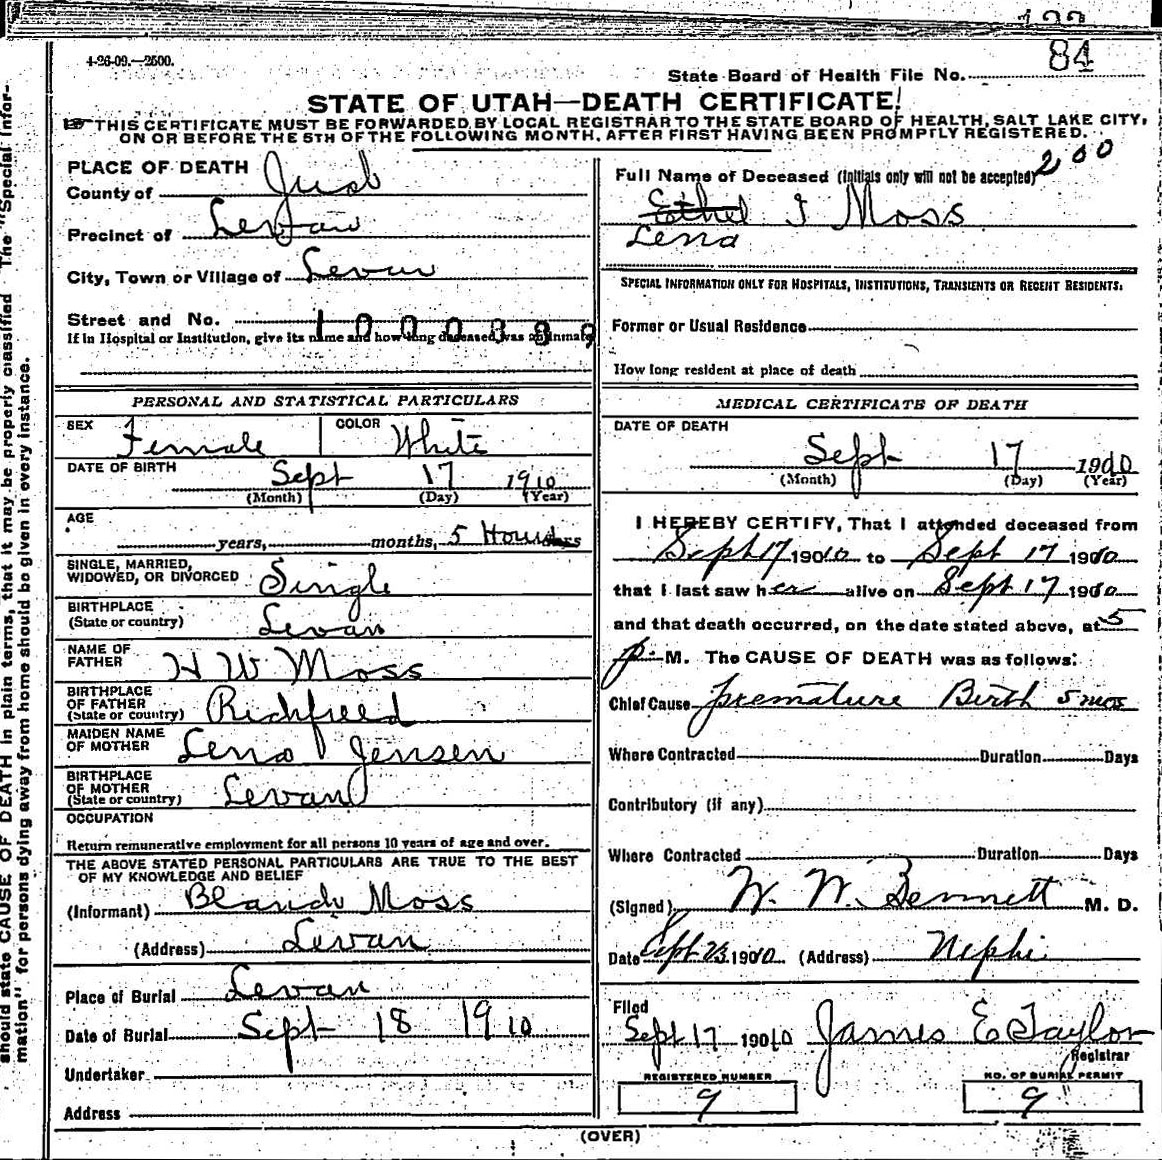 4-26-09.—2500.
84
State Board of Health File No.
STATE OF UTAH—DEATH CERTIFICATE
THIS CERTIFICATE MUST BE FORWARDED BY LOCAL REGISTRAR TO THE STATE BOARD OF HEALTH, SALT LAKE CITY,
ON OR BEFORE THE 5TH OF THE FOLLOWING MONTH, AFTER FIRST HAVING BEEN PROMPTLY REGISTERED.
PLACE OF DEATH
County of Juab
Precinct of Levan
City, Town or Village of Levan
Street and No.
If in Hospital or Institution, give its name and how long deceased was an inmate
PERSONAL AND STATISTICAL PARTICULARS
SEX Female COLOR White
DATE OF BIRTH Sept 17 1910
(Month) (Day) (Year)
AGE years, months, 5 Hours
SINGLE, MARRIED,
WIDOWED, OR DIVORCED Single
BIRTHPLACE
(State or country) Levan
NAME OF
FATHER H W Moss
BIRTHPLACE
OF FATHER
(State or country) Richfield
MAIDEN NAME
OF MOTHER Lena Jensen
BIRTHPLACE
OF MOTHER
(State or country) Levan
OCCUPATION
Return remunerative employment for all persons 10 years of age and over.
THE ABOVE STATED PERSONAL PARTICULARS ARE TRUE TO THE BEST
OF MY KNOWLEDGE AND BELIEF
(Informant) Moss
(Address) Levan
Place of Burial Levan
Date of Burial Sept 18 1910
Undertaker
Address
200
Full Name of Deceased (Initials only will not be accepted)
Ethel J Moss
Lena
SPECIAL INFORMATION ONLY FOR HOSPITALS, INSTITUTIONS, TRANSIENTS OR RECENT RESIDENTS.
Former or Usual Residence
How long resident at place of death
MEDICAL CERTIFICATE OF DEATH
DATE OF DEATH
Sept 17 1910
(Month) (Day) (Year)
I HEREBY CERTIFY, That I attended deceased from
Sept 17 1910 to Sept 17 1910
that I last saw her alive on Sept 17 1910
and that death occurred, on the date stated above, at 5
p. M. The CAUSE OF DEATH was as follows:
Chief Cause premature Birth 5 mos
Where Contracted Duration Days
Contributory (if any)
Where Contracted Duration Days
(Signed) W. W. Bennett M. D.
Date Sept 23 1910 (Address) Nephi
Filed
Sept 17 1910 James E Taylor
Registrar
REGISTERED NUMBER NO. OF BURIAL PERMIT
9 9
(OVER)
should state CAUSE OF DEATH in plain terms, that it may be properly classified The "Special Infor-
mation" for persons dying away from home should be given in every instance.